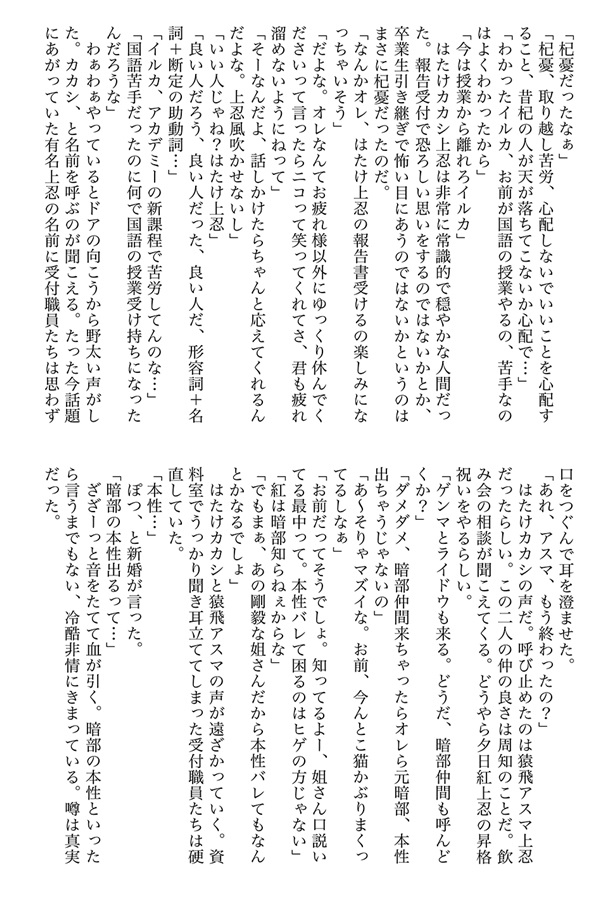 「杞憂だったなぁ」
「杞憂、取り越し苦労、心配しないでいいことを心配す
ること、昔杞の人が天が落ちてこないか心配で…」
「わかったイルカ、お前が国語の授業やるの、苦手なの
はよくわかったから」
「今は授業から離れろイルカ」
はたけカカシ上忍は非常に常識的で穏やかな人間だっ
た。報告受付で恐ろしい思いをするのではないかとか、
卒業生引き継ぎで怖い目にあうのではないかというのは
まさに杞憂だったのだ。
「なんかオレ、はたけ上忍の報告書受けるの楽しみにな
っちゃいそう」
「だよな。オレなんてお疲れ様以外にゆっくり休んでく
ださいって言ったらニコって笑ってくれてさ、君も疲れ
溜めないようにねって」
「そーなんだよ、話しかけたらちゃんと応えてくれるん
だよな。上忍風吹かせないし」
「いい人じゃね？はたけ上忍」
「良い人だろう、良い人だった、良い人だ、形容詞＋名
詞＋断定の助動詞…」
「イルカ、アカデミーの新課程で苦労してんのな…」
「国語苦手だったのに何で国語の授業受け持ちになった
んだろうな」
わぁわぁやっているとドアの向こうから野太い声がし
た。カカシ、と名前を呼ぶのが聞こえる。たった今話題
にあがっていた有名上忍の名前に受付職員たちは思わず
口をつぐんで耳を澄ませた。
「あれ、アスマ、もう終わったの？」
はたけカカシの声だ。呼び止めたのは猿飛アスマ上忍
だったらしい。この二人の仲の良さは周知のことだ。飲
み会の相談が聞こえてくる。どうやら夕日紅上忍の昇格
祝いをやるらしい。
「ゲンマとライドウも来る。どうだ、暗部仲間も呼んど
くか？」
「ダメダメ、暗部仲間来ちゃったらオレら元暗部、本性
出ちゃうじゃないの」
「あ～そりゃマズイな。お前、今んとこ猫かぶりまくっ
てるしなぁ」
「お前だってそうでしょ。知ってるよー、姐さん口説い
てる最中って。本性バレて困るのはヒゲの方じゃない」
「紅は暗部知らねぇからな」
「でもまぁ、あの剛毅な姐さんだから本性バレてもなん
とかなるでしょ」
はたけカカシと猿飛アスマの声が遠ざかっていく。資
料室でうっかり聞き耳立ててしまった受付職員たちは硬
直していた。
「本性…」
ぽつ、と新婚が言った。
「暗部の本性出るって…」
ざざーっと音をたてて血が引く。暗部の本性といった
ら言うまでもない、冷酷非情にきまっている。噂は真実
だった。